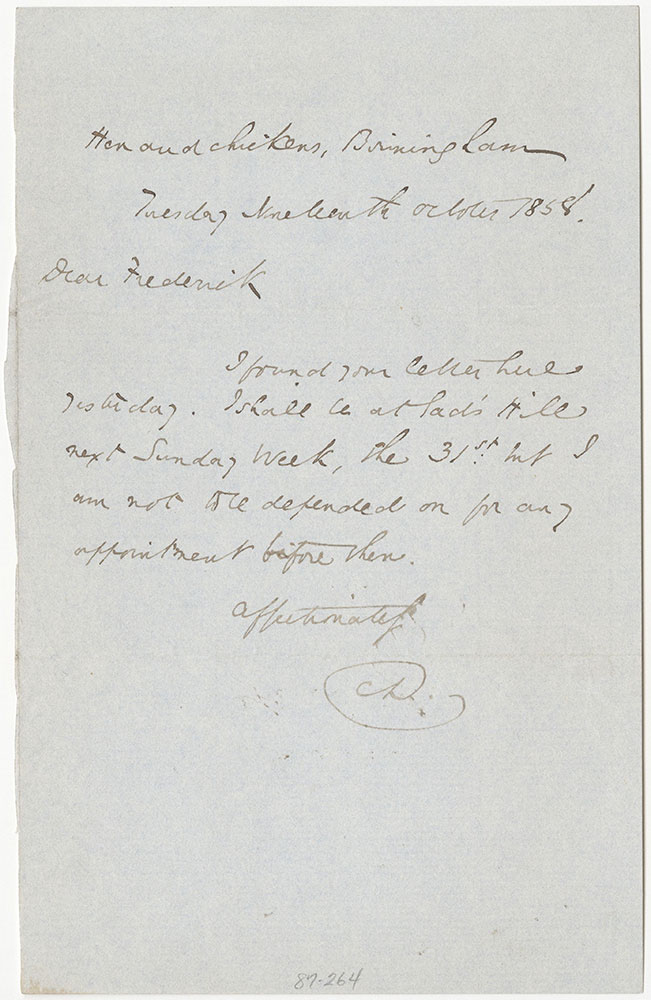 Hen and chickens, Birmingham
Tuesday Nineteenth October 1858.
Dear Frederick
I found your letter here
yesterday. I shall be at Gad's Hill
next Sunday Week, the 31st. but I
am not to be depended on for any
appointment before then.
affectionately
CD.
87-264